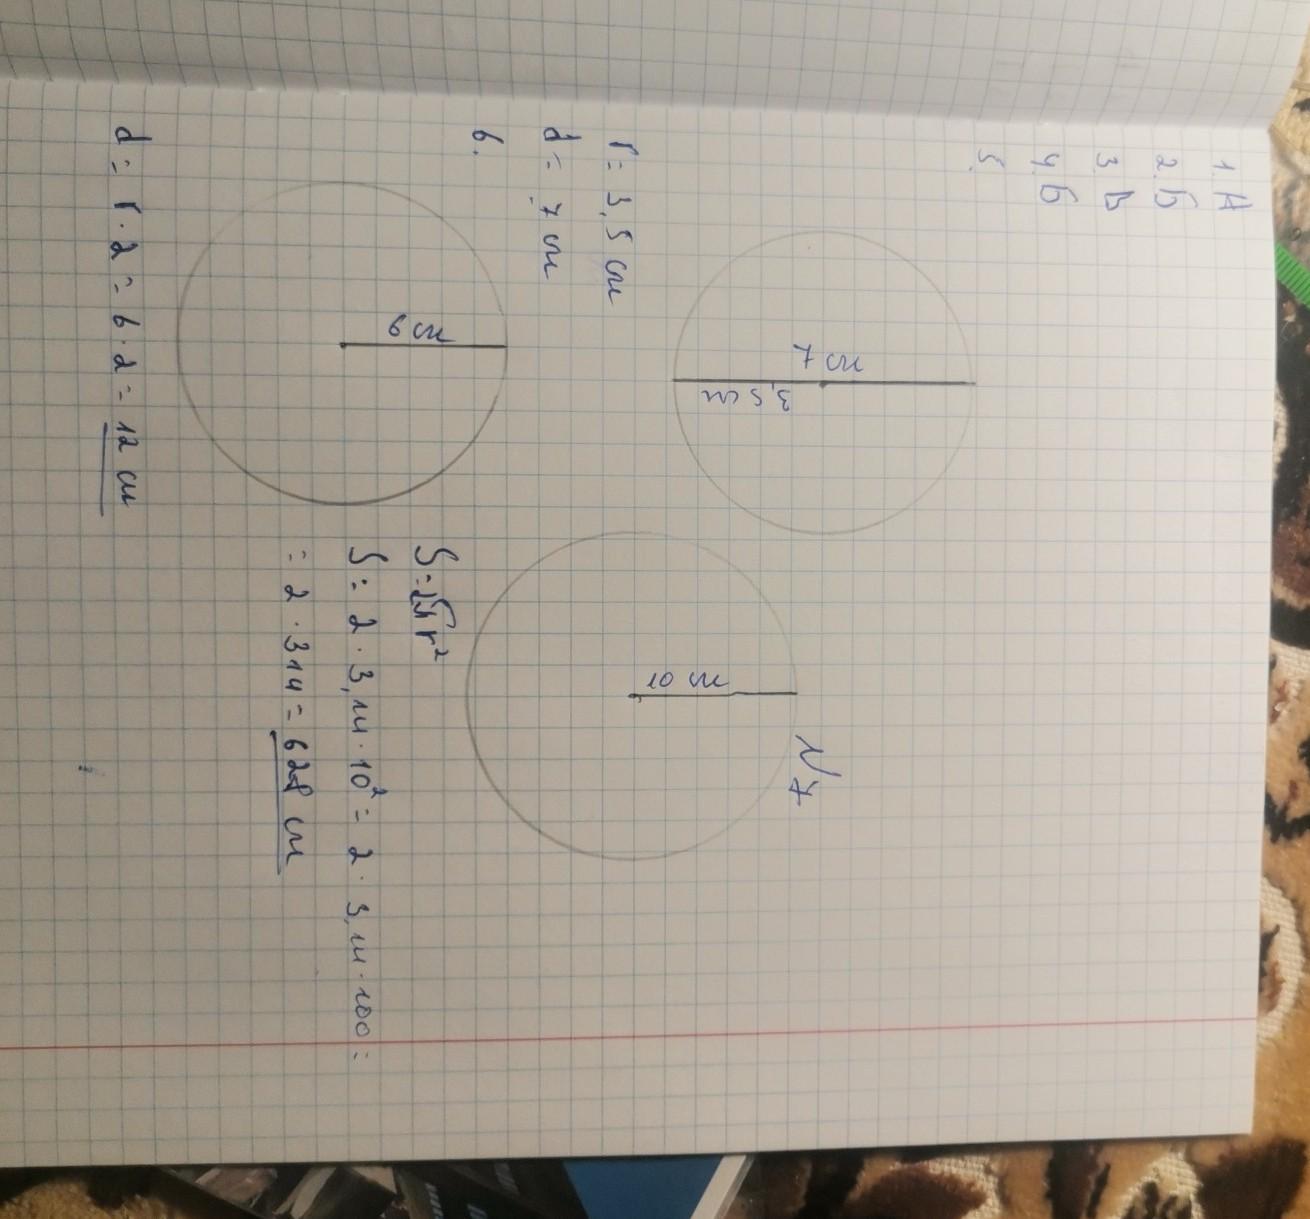 1. А
2. Б
3. В
4. Б
5.
7 см
3,5 см
r = 3,5 см
d = 7 см
6.
6 см
d = r · 2 = 6 · 2 = 12 см
№7
10 см
S = 2πr²
S = 2 · 3,14 · 10² = 2 · 3,14 · 100 =
= 2 · 314 = 628 см